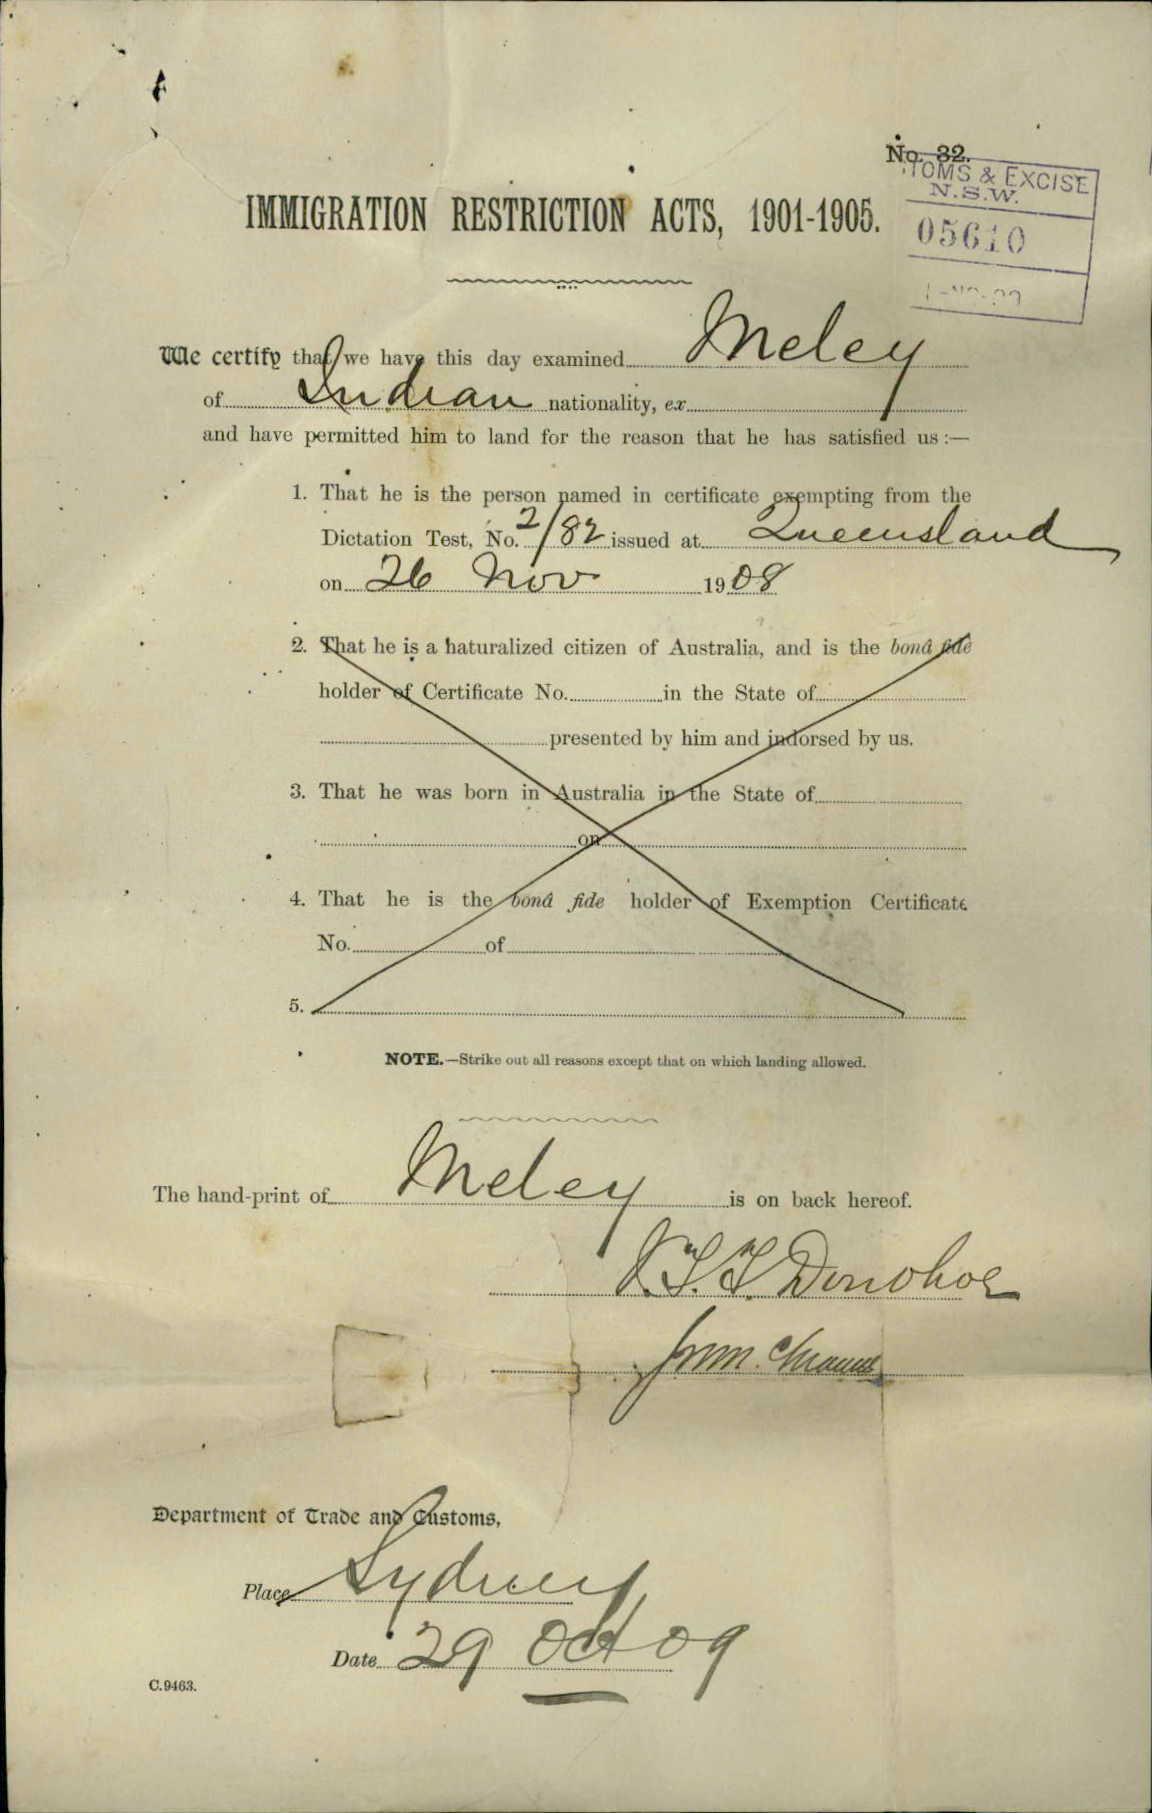 No. 32.
TOMS & EXCISE
N.S.W.
05610
IMMIGRATION RESTRICTION ACTS, 1901-1905.
We certify that we have this day examined Meley
of Indian nationality, ex
and have permitted him to land for the reason that he has satisfied us :—
1. That he is the person named in certificate exempting from the
Dictation Test, No. 2/82 issued at Queensland
on 26 Nov 1908
2. That he is a naturalized citizen of Australia, and is the bonâ fide
holder of Certificate No. in the State of
presented by him and indorsed by us.
3. That he was born in Australia in the State of
on
4. That he is the bonâ fide holder of Exemption Certificate
No. of
5.
NOTE.—Strike out all reasons except that on which landing allowed.
The hand-print of Meley is on back hereof.
J. T. T. Donohoe
Department of Trade and Customs,
Place Sydney
Date 29 Oct 09
C.9463.